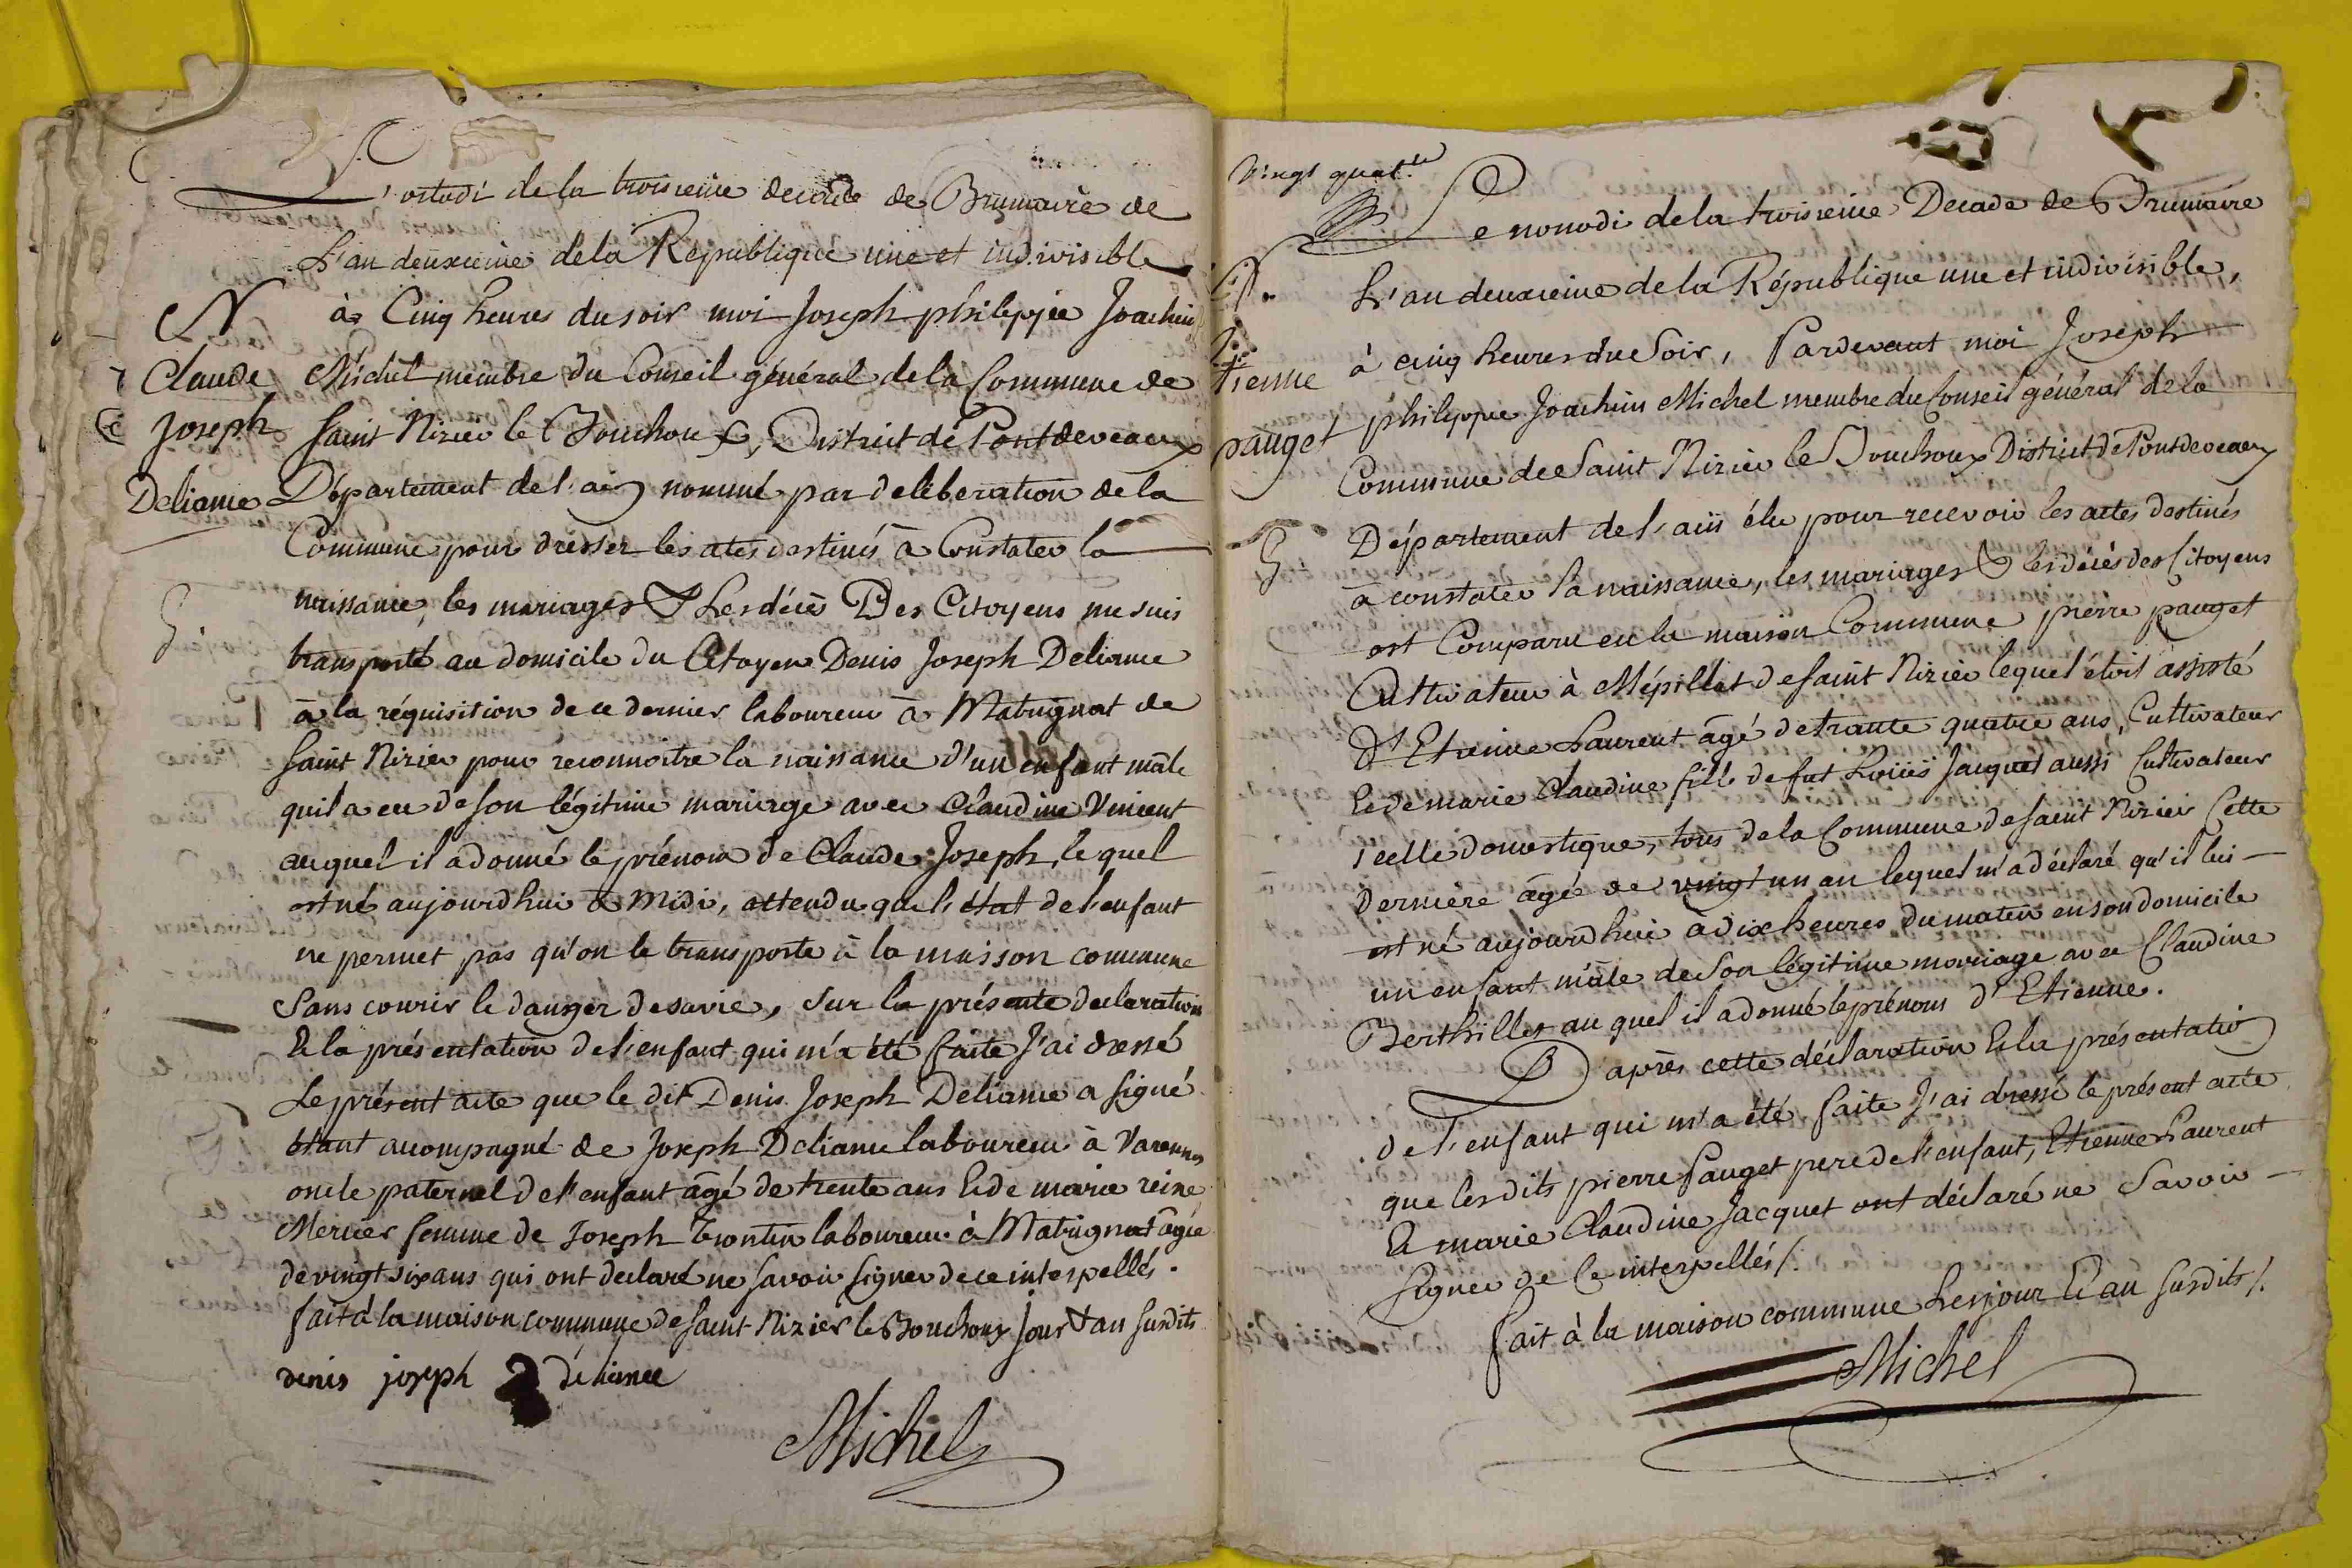 L'octodi de la troisieme decade de Brumaire de
L'an deuxieme de la République une et indivisible
à Cinq heures du soir moi Joseph philippe Joachim
Michel membre du Conseil général de la Commune de
Saint Nizier le Bouchoux, District de Pontdevaux
Département de l'ain nommé par deliberation de la
Commune pour dresser les actes destinés à Constater la
naissance, les mariages & Les décès Des Citoyens me suis
transporté au domicile du Citoyen Denis Joseph Deliance
à la réquisition de ce dernier laboureur à Matrignat de
Saint Nizier pour reconnoitre la naissance d'un enfant mâle
qu'il a eu de son légitime mariage avec Claudine Vincent
auquel il a donné le prénom de Claude Joseph, le quel
est né aujourd'hui à Midi, attendu que l'état de l'enfant
ne permet pas qu'on le transporte à la maison commune
Sans courir le danger de sa vie, Sur la présente declaration
Et la présentation de l'enfant qui m'a été faite J'ai dressé
Le présent acte que le dit Denis Joseph Deliance a signé
étant accompagné de Joseph Deliance laboureur à Varennes
oncle paternel de l'enfant âgé de trente ans Et de marie reine
Mercier femme de Joseph Trontin laboureur à Matrignat âgée
de vingt six ans qui ont déclaré ne savoir signer de ce interpellés.
fait à la maison commune de saint Nizier le Bouchoux jour & an susdits
denis joseph déliance
Michel
N
Claude
Joseph
Deliance
Vingt quat.re
Le nonodi de la troisieme Decade de Brumaire
L'an deuxieme de la République une et indivisible,
à cinq heures du Soir, Pardevant moi Joseph
philippe Joachim Michel membre du Conseil général de la
Commune de Saint Nizier le Bouchoux District de Pontdevaux
Département de l'ain élu pour recevoir les actes destinés
à constater la naissance, les mariages & les décès des Citoyens
est Comparu en la maison Commune pierre pauget
Cultivateur à Mépillat de saint Nizier lequel étoit assisté
D'Etienne Laurent âgé de trante quatre ans, Cultivateur
Et de marie Claudine fille de fut Louis Jacquet aussi Cultivateur
icelle domestique, tous de la Commune de saint Nizier Cette
Derniere âgée de vingt un an lequel m'a déclaré qu'il lui
est né aujourd'hui à dix heures du matin en son domicile
un enfant mâle de Son légitime mariage avec Claudine
Berthillet au quel il a donné le prénom d'Etienne.
D'après cette déclaration Et la présentation
de l'enfant qui m'a été faite J'ai dressé le présent acte
que les dits pierre Pauget pere de l'enfant, Etienne Laurent
Et marie Claudine Jacquet ont déclaré ne Savoir
Signer de Ce interpellés/.
fait à la maison commune Les jour Et an susdits/.
Michel
tienne
pauget